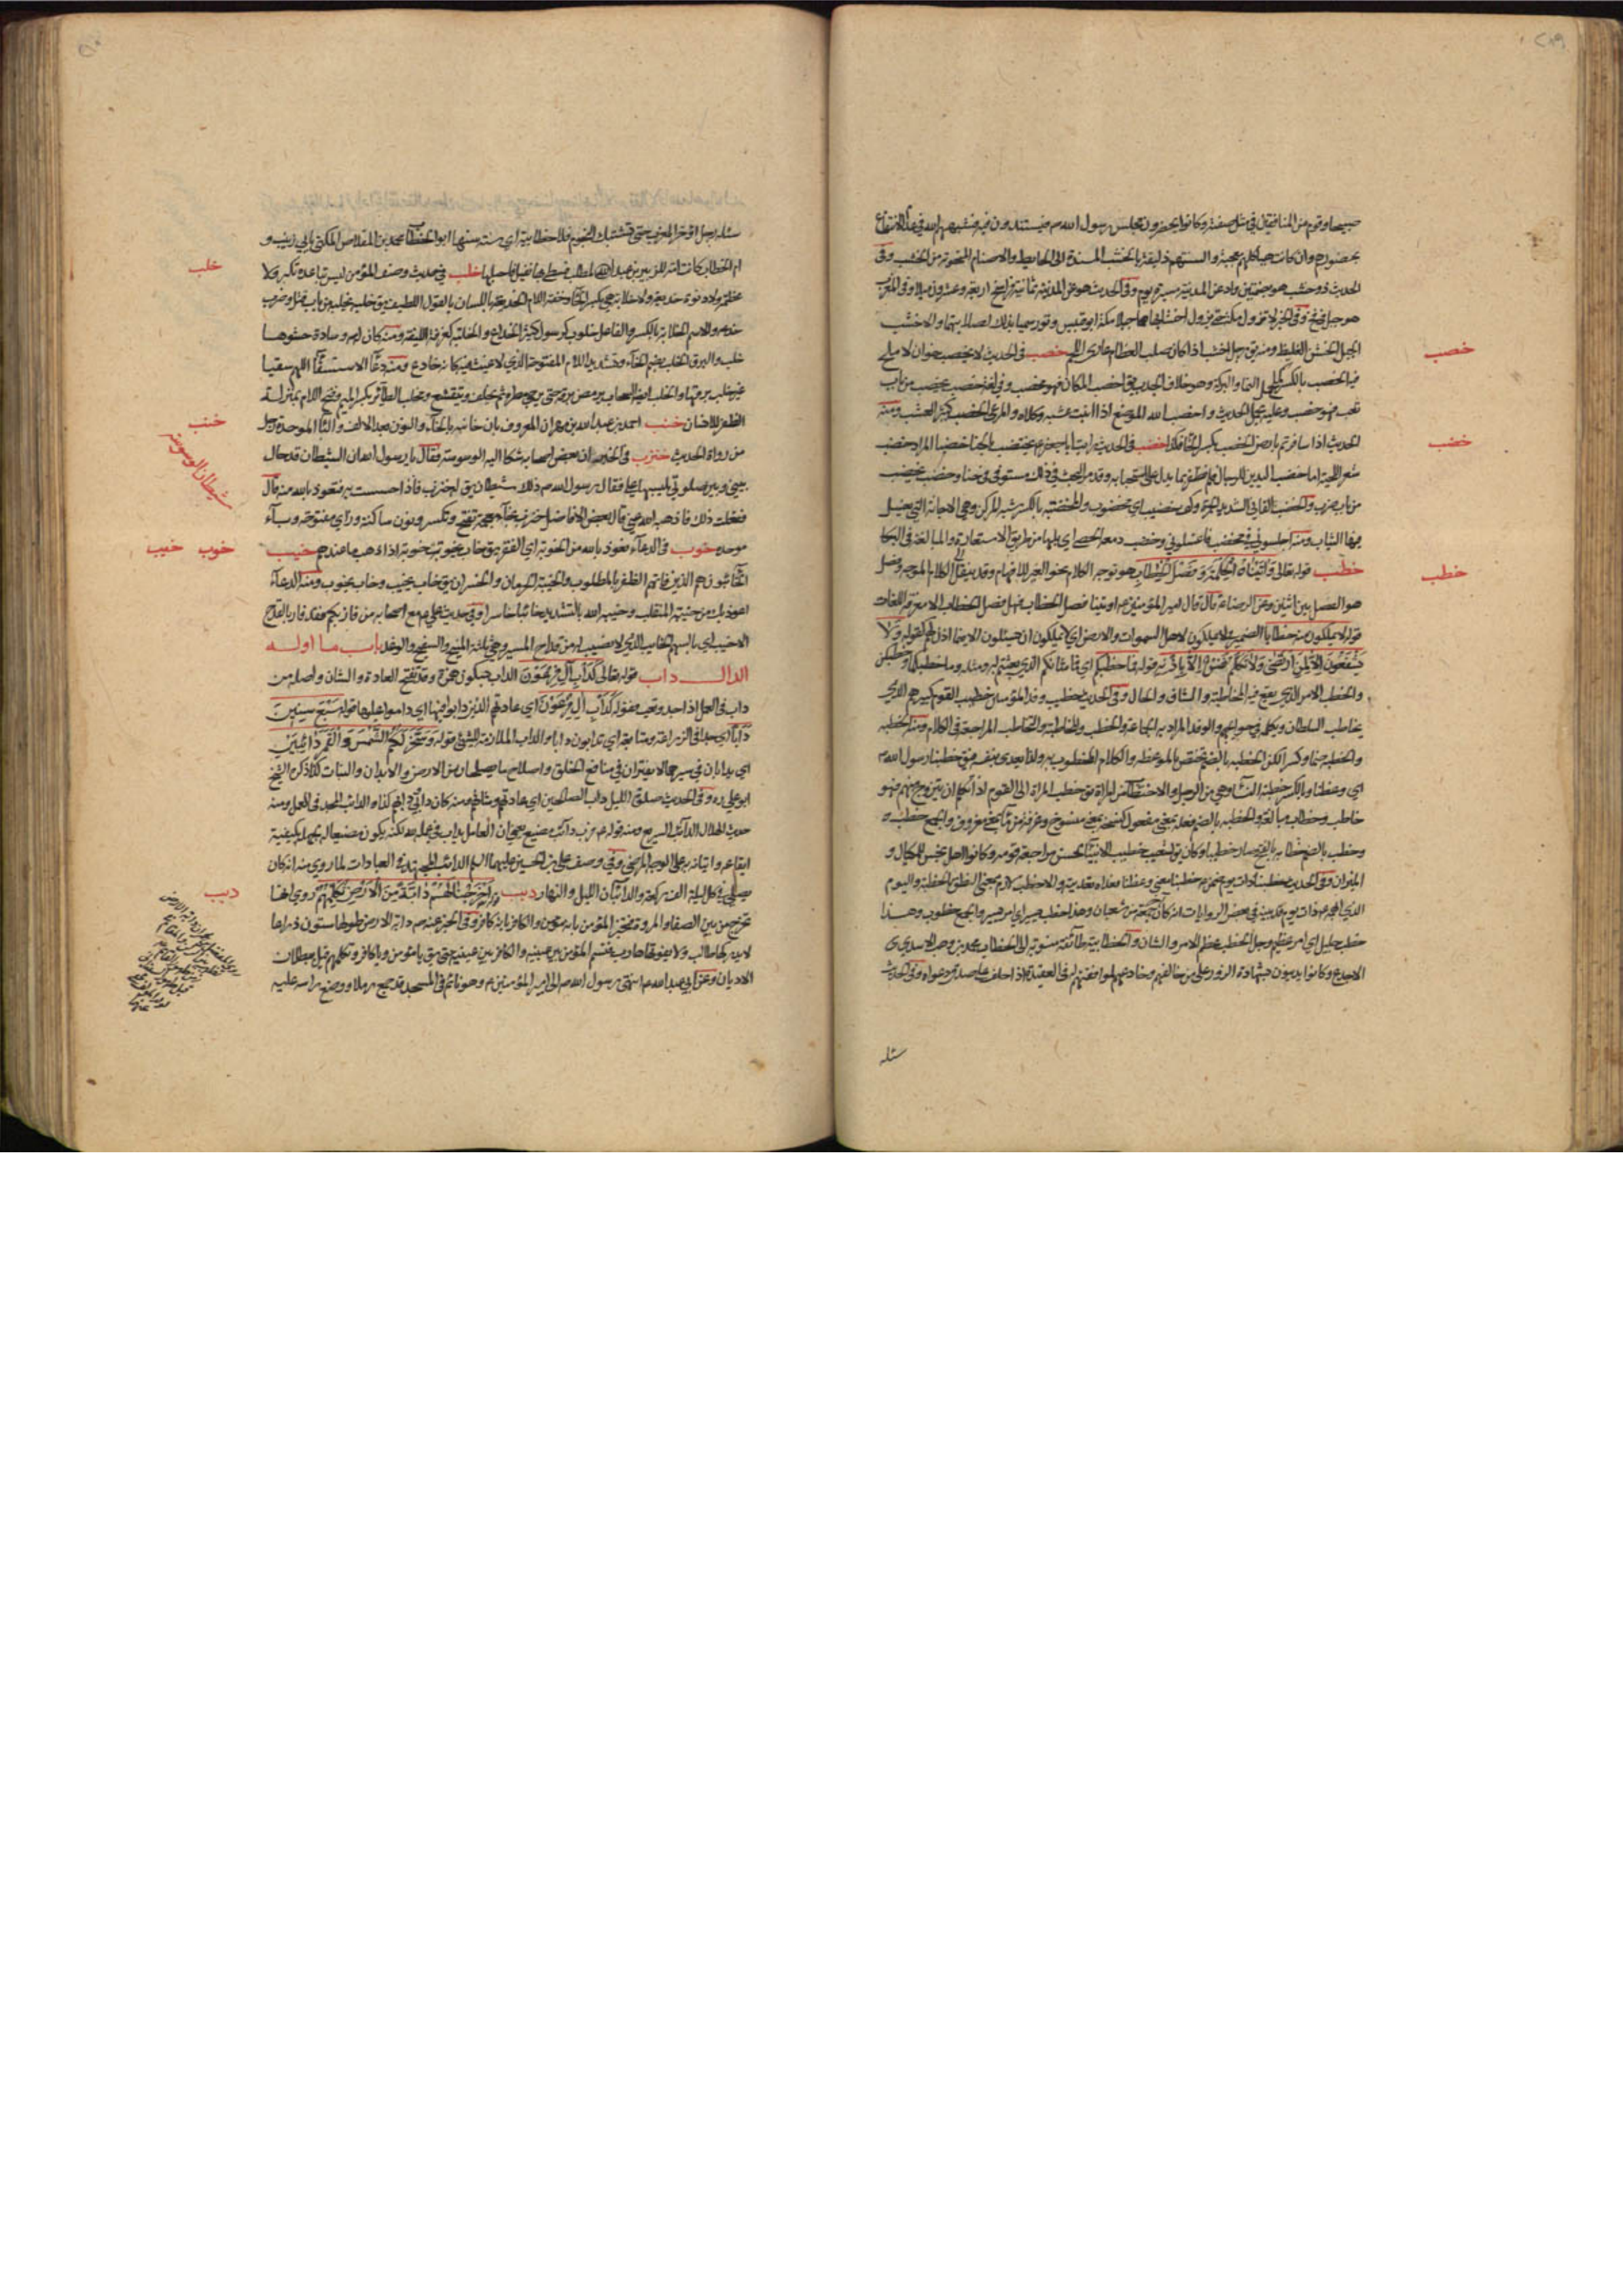 صبيحا وقوم من المنافقين في مثل صفته وكانوا يحضرون مجلس رسول الله ص فيستندون فيه فشبههم الله في عدم الانتفاع
بحضورهم وان كانت هياكلهم معجبة والسنتهم ذليقة بالخشب المسندة الى الحايط والاصنام المنحوتة من الخشب وفي
الحديث ذو خشب هو بضمتين واد عن المدينة مسيرة يوم وفي الحديث هو من المدينة ثمانية فراسخ اربعة وعشرون ميلا وفي المغرب
هو جبل وفي الخبر لا تزول مكة حتى يزول اخشباها هما جبلا مكة ابو قبيس وثور سميا بذلك لصلابتهما والاخشب
الجبل الخشن الغليظ ومنه يق رجل اخشب اذا كان صلب العظام عاري اللحم خصب في الحديث لا يخصب خوان لا ملح
فيه الخصب بالكسر كحمل النما والبركة وهو خلاف الجدب يق اخصب المكان فهو مخصب وفي لغة خصب يخصب من باب
تعب فهو خصب وعليه يحمل الحديث واخصب الله الموضع اذا انبت عشبه وكلاه والمرعى الخصب كثير العشب ومنه
الحديث اذا سافرتم بارض الخصب بكسر الخا فكذا خضب في الحديث رايت ابا جعفر ع يختضب بالحنا خضبا المراد خضب
شعر اللحية اما خضب اليدين للرجال فلم نظفر بما يدل على استحبابه وقد مر البحث في ذلك مستوفى في حنا وخضب يخضب
من باب ضرب والخضب القاني الشديد الحمرة وكف خضيب اي مخضوب والمخضبة بالكسر شبه المركن وهي الاجانة التي يغسل
فيها الثياب ومنه اجلسوني في مخضب فاغسلوني وخضب دمعه الحصى اي بلها من طريق الاستعارة والمبالغة في البكا
خطب قوله تعالى وَآتَيْنَاهُ الْحِكْمَةَ وَفَصْلَ الْخِطَابِ هو توجه الكلام نحو الغير للافهام وقد ينقل الى الكلام الموجه وفصل
هو الفصل بين اثنين وعن الرضا ع قال قال امير المؤمنين ع اوتينا فصل الخطاب فهل فصل الخطاب الا معرفة اللغات
قوله لا يملكون منه خطابا الضمير في لا يملكون لاهل السموات والارض اي لا يملكون ان يسئلون الا فيما اذن لهم كقوله وَلَا
يَشْفَعُونَ اِلَّا لِمَنِ ارْتَضَى وَلَا تَكَلَّمُ نَفْسٌ اِلَّا بِاِذْنِهِ قوله فما خطبكم اي فما شانكم الذي بعثتم له ومثله وما خطبكما وخطبكن
والخطب الامر الذي يقع فيه المخاطبة والشان والحال وفي الحديث خطيب وفد المؤمنين خطيب القوم كبيرهم الذي
يخاطب السلطان ويكلمه في حوائجهم والوفد المراد به الجماعة والخطب والمخاطبة والتخاطب المراجعة في الكلام ومنه الخطبة
والخطبة ضما وكسرا لكن الخطبة بالضم تختص بالموعظة والكلام المخطوب به ولذا يعدى بنفسه فيق خطبنا رسول الله ص
اي وعظنا وبالكسر خطبة النسا وهي من الرجل والاختطاب من المراة يق خطب المراة الى القوم اذا تكلم ان يتزوج منهم فهو
خاطب وخطاب مبالغة والخطبة بالضم فعلة بمعنى مفعول كنسخة بمعنى منسوخ وغرفة من ماء بمعنى مغروف والجمع خطب
وخطب بالضم خطابة بالفتح صار خطيبا وكان يق لشعيب خطيب الانبيا لحسن مراجعته قومه وكانوا اهل بخس للمكيال و
الميزان وفي الحديث خطبنا ذات يوم ضمن خطبنا معنى وعظنا فعداه تعديته والا خطب لازم بمعنى انطق الخطبة واليوم
الذي ابهم ع ذات يوم قد بينه في بعض الروايات انه كان جمعة من شعبان وهذا خطب يسير اي امر يسير والجمع خطوب وهذا
خطب جليل اي امر عظيم وجل الخطب عظم الامر والشان والخطابية طائفة منسوبة الى الخطاب محمد بن وهب الاسدي
الاجدع وكانوا يدينون بشهادة الزور على من خالفهم وخادعهم لموافقتهم له في العقيدة اذا حلف على صدق دعواه وفي الحديث
سئله
خصب
خضب
خطب
سئله رجل اؤخر المغرب حتى تشتبك النجوم فقال خطابية اي سنة سنها ابو الخطاب محمد بن المقلاص المكنى بابي زينب و
ام الخطاب كانت امة للزبير بن عبد المطلب فسطى بها نفيل فاحبلها خلب في حديث وصف المؤمن ليس تباعده تكبر ولا
عظمة ولا دنوه خديعة ولا خلابة هي بكسر الخا وخفة اللام الخديعة باللسان بالقول اللطيف يق خلبه يخلبه من باب قتل وضرب
خدعه والاسم الخلابة بالكسر والفاعل خلوب كرسول كثير الخداع والخلبة كغرفة الليفة ومنه كان له وسادة حشوها
خلب والبرق الخلب بضم الخاء وتشديد اللام المفتوحة الذي لا غيث فيه كانه خادع ومنه دعا الاستسقا اللهم سقيا
غير خلب برقها والخلب ايضا السحاب يومض برقه حتى يرجى مطره ثم يخلف ويتقشع ومخلب الطائر بكسر الميم وفتح اللام بمنزلة
الظفر للانسان خنب احمد بن عبد الله بن مهران المعروف بابن خانبه بالخاء والنون بعد الالف والبا الموحدة رجل
من رواة الحديث خنزب في الخبر ان بعض اصحابه شكا اليه الوسوسة فقال يا رسول الله ان الشيطان قد حال
بيني وبين صلوتي يلبسها علي فقال رسول الله ص ذلك شيطان يق له خنزب فاذا احسست به فتعوذ بالله منه قال
ففعلت ذلك فاذهب الله عني قال بعض الافاضل خنزب بخاء معجمة تفتح وتكسر ونون ساكنة وزاي مفتوحة وباء
موحده خوب في الدعاء نعوذ بالله من الخوبة اي الفقر يق خاب يخوب خوبة اذا ذهب ما عندهم خيب
الخائبون هم الذين فاتهم الظفر بالمطلوب والخيبة الحرمان والخسران يق خاب يخيب وخاب يخوب ومنه الدعاء
اعوذ بك من خيبة المنقلب وخيبه الله بالتشديد جعله خائبا خاسرا وفي حديث علي ع مع اصحابه من فاز بكم فقد فاز بالقدح
الاخيب اي بالسهم الخايب الذي لا نصيب له من قداح الميسر وهي ثلثة المنيح والسفيح والوغد باب ما اوله
الدال داب قوله تعالى كَدَأْبِ آلِ فِرْعَوْنَ الداب بسكون همزة وقد تفتح العادة والشان واصله من
داب في العمل اذا جد وتعب فقوله كَدَأْبِ آلِ فِرْعَوْنَ اي عادتهم الذين دابوا فيها اي داموا عليها قوله سَبْعَ سِنِينَ
دَأَبًا اي جدا في الزراعة ومتابعة اي تدابون دابا والداب الملازمة للشئ قوله وَسَخَّرَ لَكُمُ الشَّمْسَ وَالْقَمَرَ دَائِبَيْنِ
اي يدابان في سيرهما لا يفتران في منافع الخلق واصلاح ما يصلحان من الارض والابدان والنبات كذا ذكره الشيخ
ابو علي ره وفي الحديث صلوة الليل داب الصالحين اي عادتهم وشانهم ومنه كان دابي ودابهم كذا والدائب المجد في العمل ومنه
حديث الهلال الدائب السريع ومنه قوله ع فرب دائب مضيع يعني ان العامل يداب في عمله لله لكنه يكون مضيعا له لجهله بكيفية
ايقاعه واتيانه به على الوجه المرضي وفي وصف علي بن الحسين عليهما السلم الدائب المجتهد في العبادات لما روي منه انه كان
يصلي في كل ليلة الف ركعة والدائبان الليل والنهار دبب قوله اَخْرَجْنَا لَهُمْ دَابَّةً مِنَ الْاَرْضِ تُكَلِّمُهُمْ روي انها
تخرج من بين الصفا والمروة فتخبر المؤمن بانه مؤمن والكافر بانه كافر وفي الخبر عنه ص دابة الارض طولها ستون ذراعا
لا يدركها طالب ولا يفوتها هارب فتسم المؤمن بين عينيه والكافر بين عينيه حتى يق يا مؤمن ويا كافر وتكلمهم قبل ببطلان
الاديان وعن ابي عبد الله ع انتهى رسول الله ص الى امير المؤمنين ع وهو نائم في المسجد قد جمع رملا ووضع راسه عليه
خلب
خنب
شيطان الوسوسة
خوب خيب
دبب